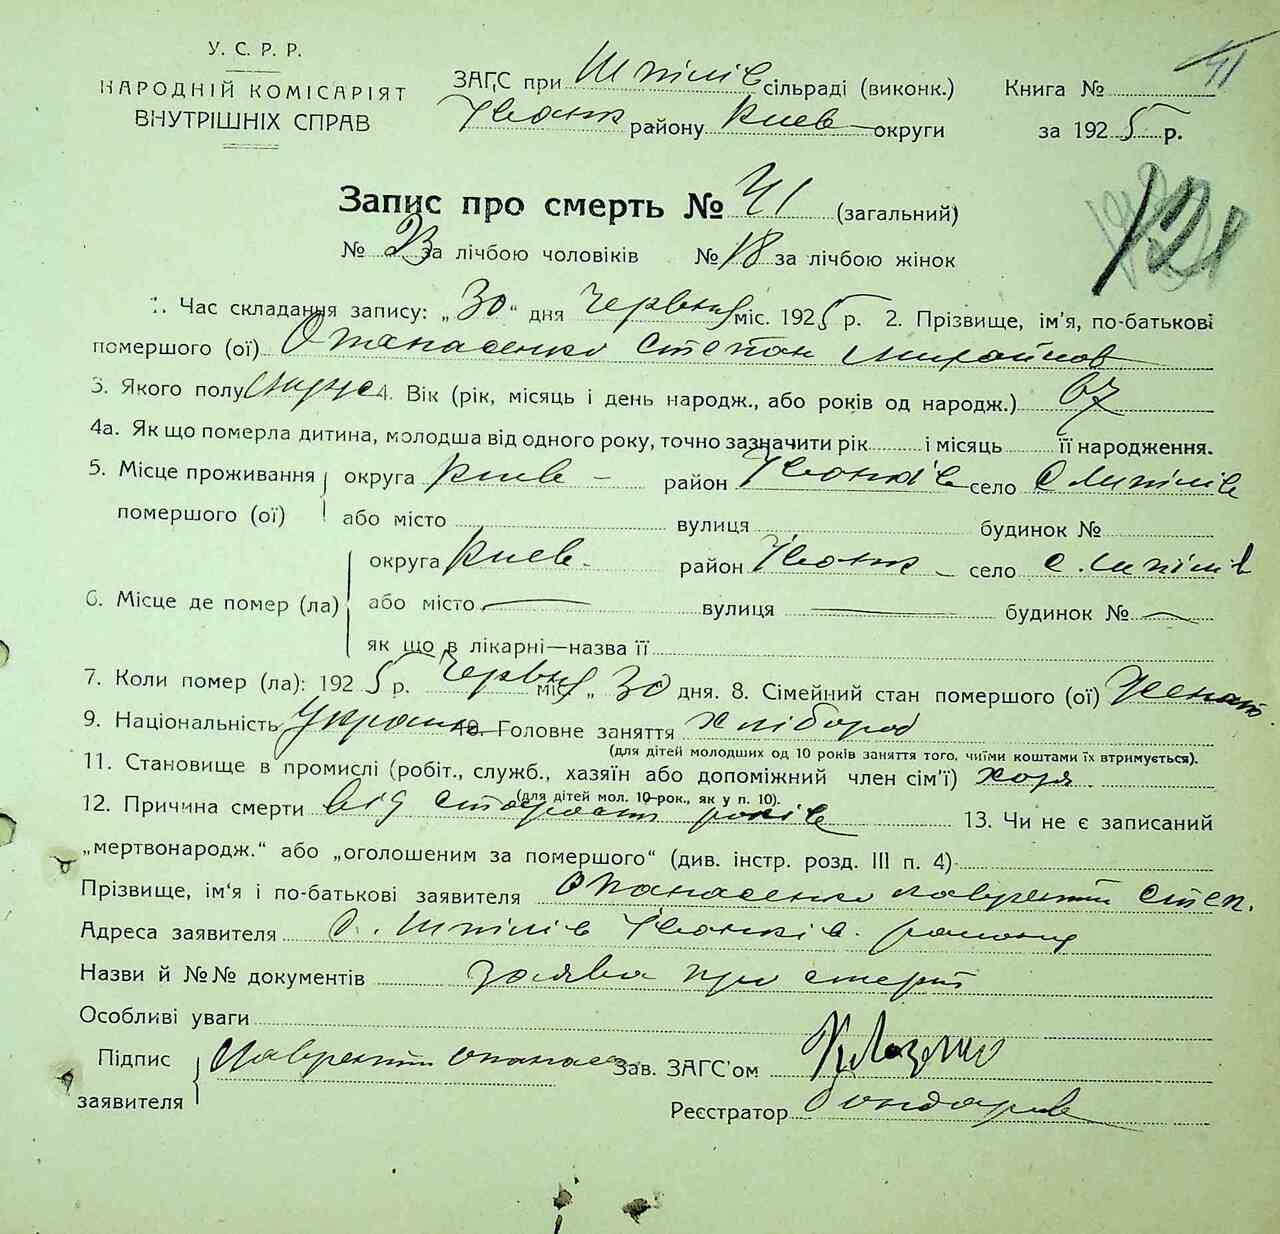 У. С. Р. Р.
НАРОДНІЙ КОМІСАРІЯТ
ВНУТРІШНІХ СПРАВ
ЗАГС при Шпілів сільраді (виконк.)
Іванк району Києв округи
Книга № 41
за 1925 р.
Запис про смерть № 41 (загальний)
121
№ 23 за лічбою чоловіків № 18 за лічбою жінок
1. Час складання запису: „30“ дня Червня міс. 1925 р. 2. Прізвище, ім'я, по-батькові
помершого (ої) Опанасенко Степан
3. Якого полу муж 4. Вік (рік, місяць і день народж., або років од народж.) 67
4а. Як що померла дитина, молодша від одного року, точно зазначити рік і місяць її народження.
5. Місце проживання помершого (ої) округа Києв район Іванків село с Шпілів
або місто вулиця будинок №
6. Місце де помер (ла) округа Києв район Іванк село с. Шпілів
або місто — вулиця — будинок № —
як що в лікарні—назва її
7. Коли помер (ла): 1925 р. Червня міс. „30 дня. 8. Сімейний стан помершого (ої) Женат
9. Національність Украин 10. Головне заняття хлібороб
(для дітей молодших од 10 років заняття того, чиїми коштами їх втримується).
11. Становище в промислі (робіт., служб., хазяїн або допоміжний член сім'ї) хозя
(для дітей мол. 10-рок., як у п. 10).
12. Причина смерти від старости років 13. Чи не є записаний
„мертвонародж.“ або „оголошеним за помершого“ (див. інстр. розд. III п. 4)
Прізвище, ім'я і по-батькові заявителя Опанасенко Лаврентій Степ.
Адреса заявителя с. Шпілів Іванків. району
Назви й №№ документів заява про смерть
Особливі уваги
Підпис заявителя Лаврентій Опанас
Зав. ЗАГС'ом
Реєстратор